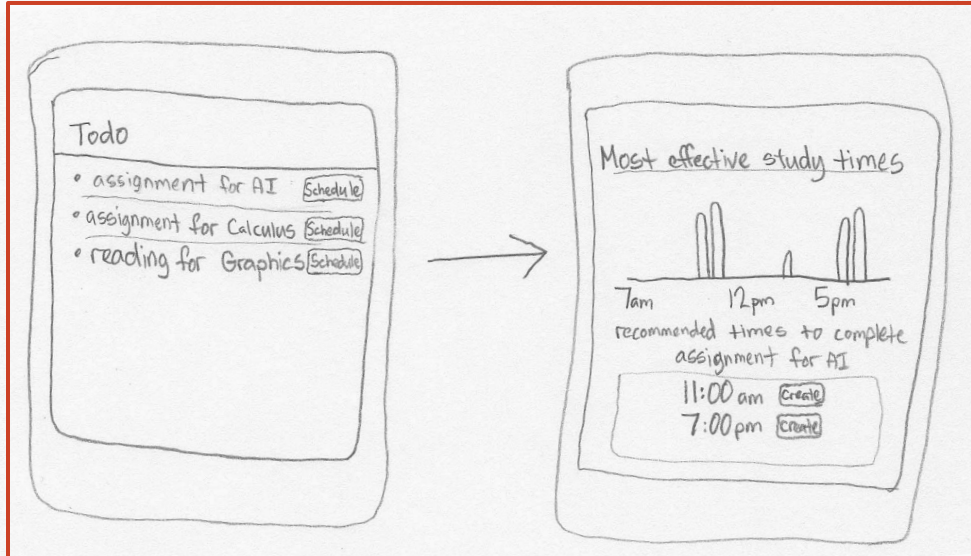 Todo
• assignment for AI Schedule
• assignment for Calculus Schedule
• reading for Graphics Schedule
Most effective study times
7am 12pm 5pm
recommended times to complete
assignment for AI
11:00 am Create
7:00pm Create